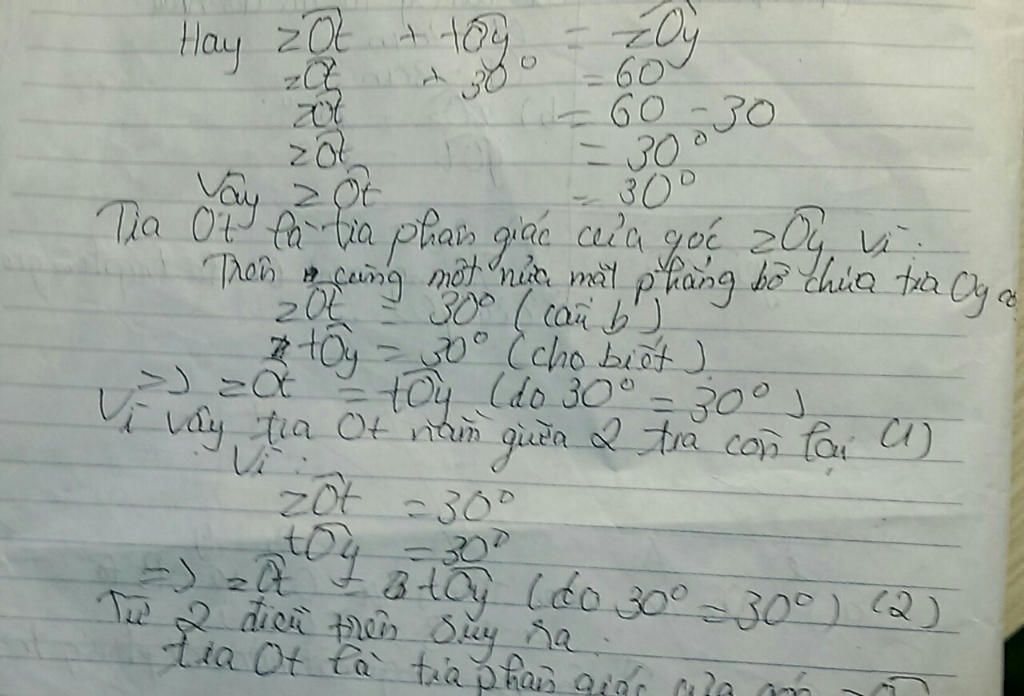 Hay zÔt + tÔy = zÔy
zÔt + 30° = 60
zÔt = 60 - 30
zÔt = 30°
Vậy zÔt = 30°
Tia Ot là tia phân giác của góc zÔy vì:
Trên cùng một nửa mặt phẳng bờ chứa tia Oy
zÔt = 30° (câu b)
tÔy = 30° (cho biết)
=> zÔt = tÔy (do 30° = 30°)
Vì vậy tia Ot nằm giữa 2 tia còn lại (1)
Vì:
zÔt = 30°
tÔy = 30°
=> zÔt = tÔy (do 30° = 30°) (2)
Từ 2 điều trên suy ra.
tia Ot là tia phân giác của góc zÔy